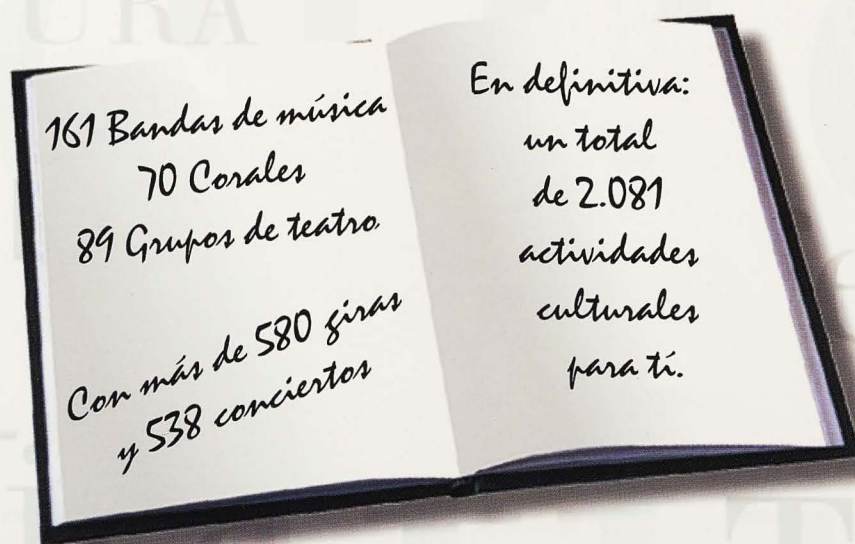 URA
161 Bandas de música
70 Corales
89 Grupos de teatro
Con más de 580 giras
y 538 conciertos
En definitiva:
un total
de 2.081
actividades
culturales
para tí.